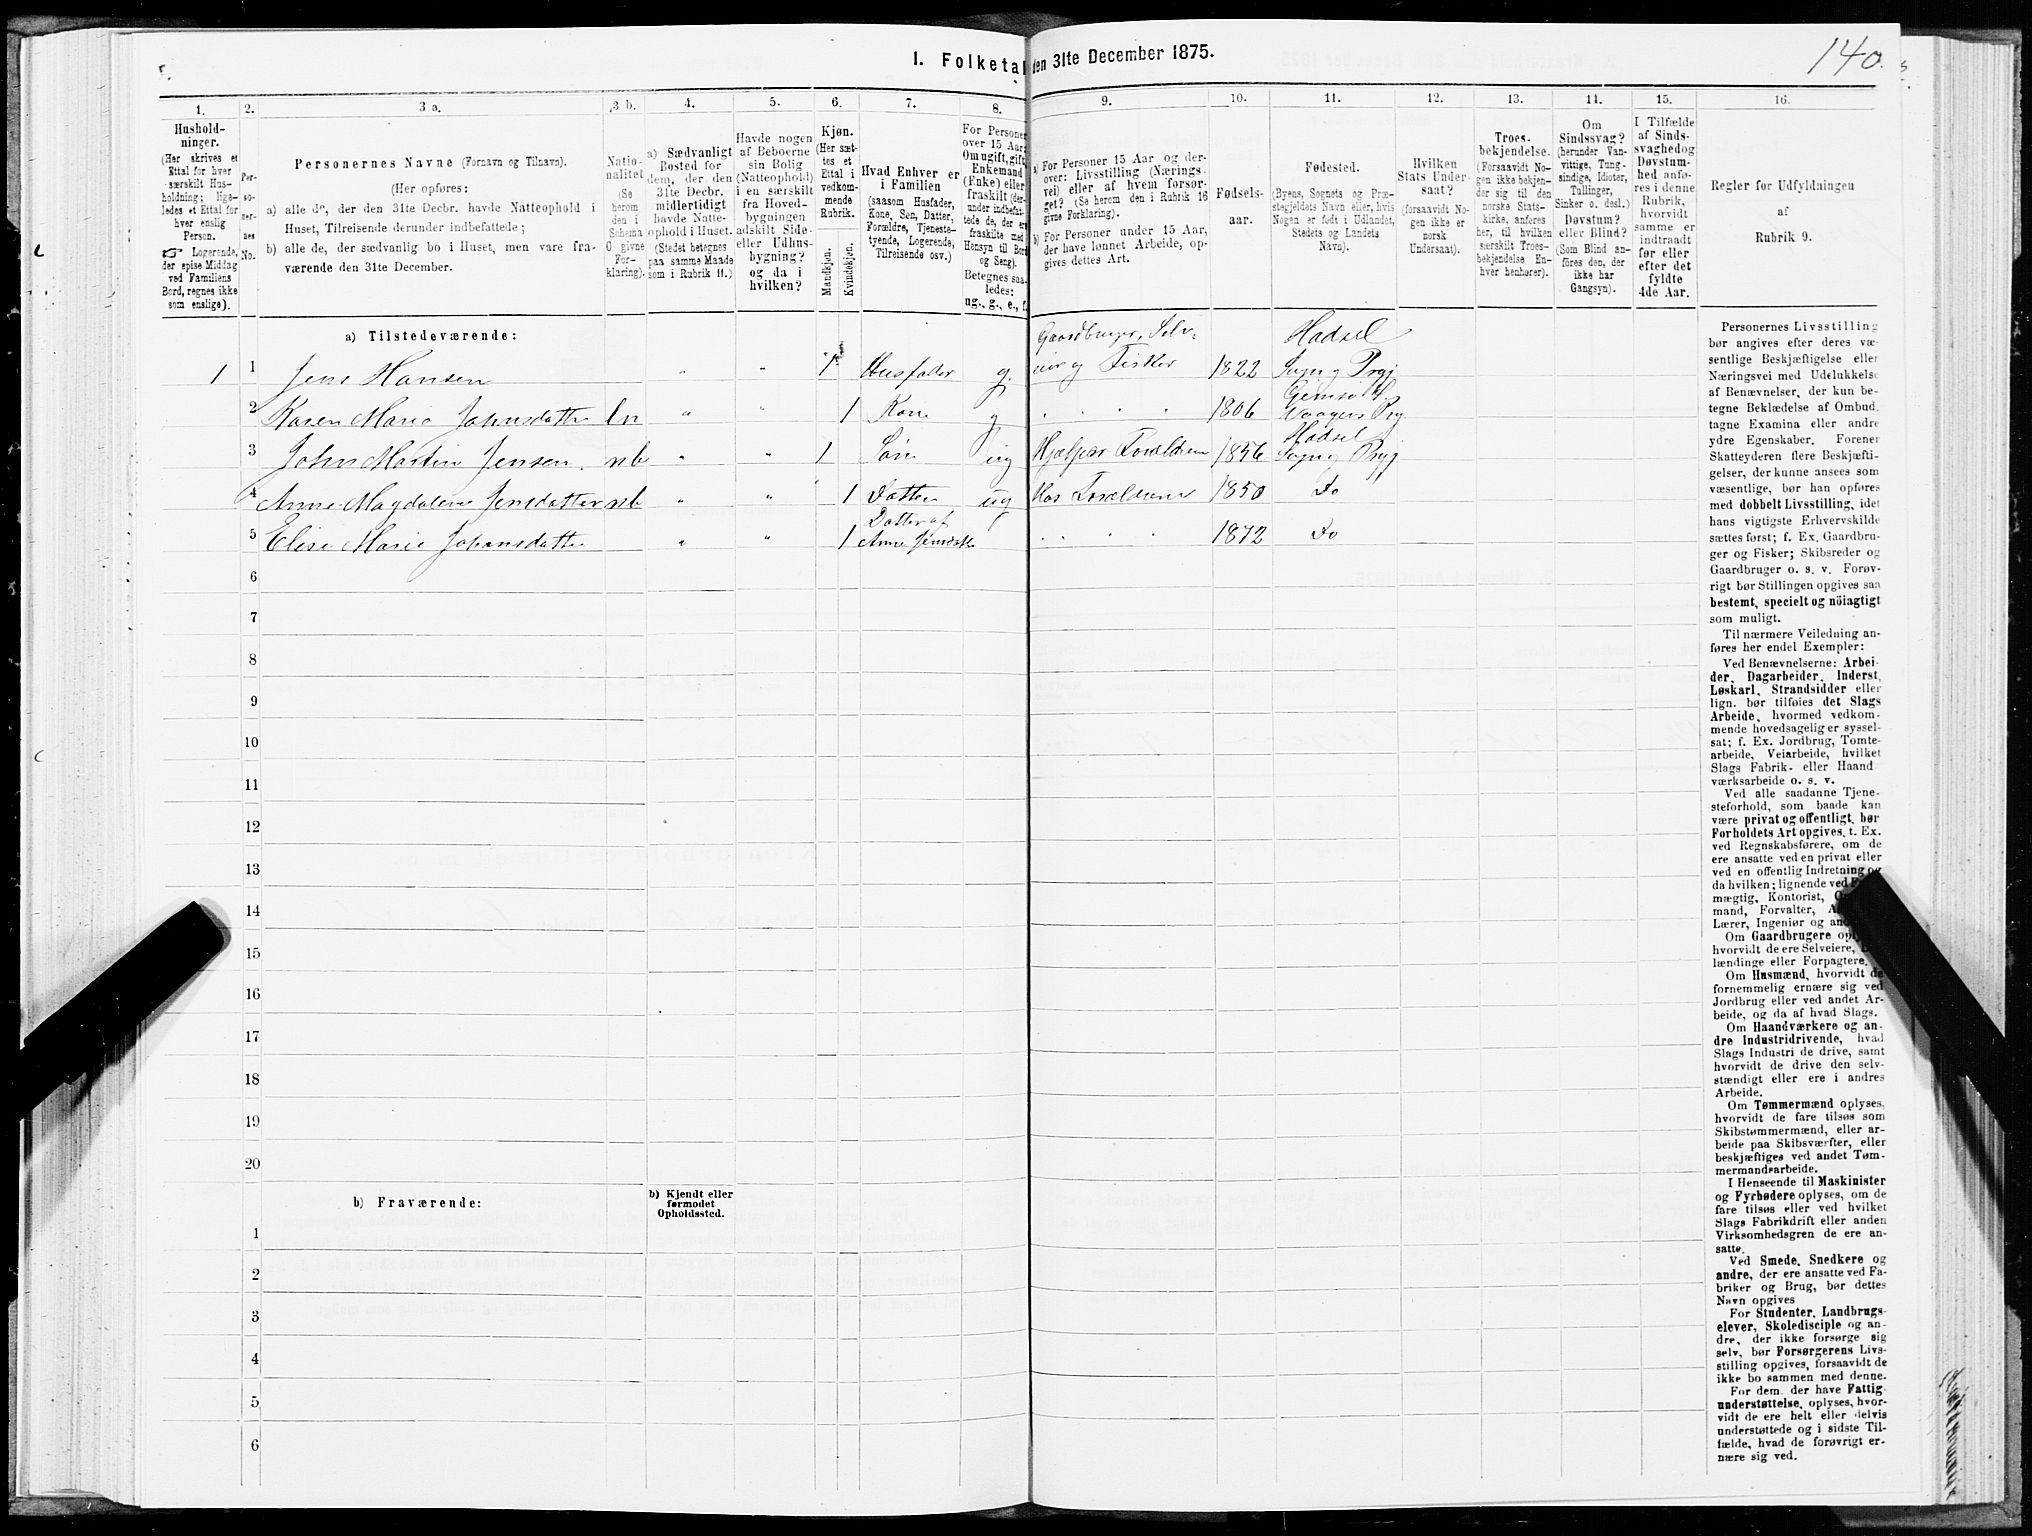 1. Folketal den 31te December 1875.
140.
1.
2.
3 a.
3 b.
4.
5.
6.
7.
8.
9.
10.
11.
12.
13.
14.
15.
16.
Hushold-
ninger.
(Her skrives et
Ettal for hver
særskilt Hus-
holdning; lige-
ledes et Ettal for
hver enslig
Person.
Logerende,
der spise Middag
ved Familiens
Bord, regnes ikke
som enslige).
Per-
so-
ner-
nes
No.
Personernes Navne (Fornavn og Tilnavn).
(Her opføres:
a) alle de, der den 31te Decbr. havde Natteophold i
Huset, Tilreisende derunder indbefattede;
b) alle de, der sædvanlig bo i Huset, men vare fra-
værende den 31te December.
Natio-
nalitet
(Se
herom
den i
Schema
O givne
For-
klaring).
a) Sædvanligt
Bosted for
dem, der den
31te Decbr.
midlertidigt
havde Natte-
ophold i Huset.
(Stedet betegnes
paa samme Maade
som i Rubrik 11.)
Havde nogen
af Beboerne
sin Bolig
(Natteophold)
i en særskilt
fra Hoved-
bygningen
adskilt Side-
eller Udhus-
bygning?
og da i
hvilken?
Kjøn.
(Her sæt-
tes et
Ettal i
vedkom-
mende
Rubrik.
Mandkjøn.
Kvindekjøn.
Hvad Enhver er
i Familien
(saasom Husfader,
Kone, Søn, Datter,
Forældre, Tjeneste-
tyende, Logerende,
Tilreisende osv.)
For Personer
over 15 Aar:
Om ugift, gift,
Enkemand
(Enke) eller
fraskilt (der-
under indbefat-
tede de, der ere
fraskilte med
Hensyn til Bord
og Seng).
Betegnes saa-
ledes:
ug., g., e., f.
a) For Personer 15 Aar og der-
over: Livsstilling (Nærings-
vei) eller af hvem forsør-
get? (Se herom den i Rubrik 16
givne Forklaring).
b) For Personer under 15 Aar,
der have lønnet Arbeide, op-
gives dettes Art.
Fødsels-
aar.
Fødested.
(Byens, Sognets og Præ-
stegjeldets Navn eller, hvis
Nogen er født i Udlandet,
Stedets og Landets
Navn).
Hvilken
Stats Under-
saat?
(forsaavidt No-
gen ikke er
norsk
Undersaat).
Troes-
bekjendelse.
(Forsaavidt No-
gen ikke bekjen-
der sig til den
norske Stats-
kirke, anføres
her, til hvilken
særskilt Troes-
bekjendelse En-
hver henhører).
Om
Sindssvag?
(herunder Van-
vittige, Tung-
sindige, Idioter,
Tullinger,
Sinker o. desl.)
Døvstum?
eller Blind?
(Som Blind an-
føres den, der
ikke har
Gangsyn).
I Tilfælde
af Sinds-
svaghed og
Døvstum-
hed anfø-
res i denne
Rubrik,
hvorvidt
samme er
indtraadt
før eller
efter det
fyldte
4de Aar.
Regler for Udfyldningen
af
Rubrik 9.
a) Tilstedeværende:
1 1 Jens Hansen " " 1 Husfader g. Gaardbruger, Selv-
eier og Fisker 1822 Hadsel
Sogn og Prgj
2 Karen Maria Johnsdatter ln " " 1 Kone g " " " " 1806 Gimsø
Vaagens Prg
3 John Martin Jensen. nb " " 1 Søn ug Hjælper Forældrene 1856 Hadsel
Sogn og Prgj
4 Anne Magdalena Jensdatter nb " " 1 Datter ug Hos Forældrene 1850 Do
5 Elise Marie Johansdatter " " 1 Datter af
Anne Jensdatter " " " " 1872 Do
6
7
8
9
10
11
12
13
14
15
16
17
18
19
20
b) Fraværende:
b) Kjendt eller
formodet
Opholdssted.
1
2
3
4
5
6
Personernes Livsstilling
bør angives efter deres væ-
sentlige Beskjæftigelse eller
Næringsvei med Udelukkelse
af Benævnelser, der kun be-
tegne Beklædelse af Ombud,
tagne Examina eller andre
ydre Egenskaber. Forener
Skatteyderen flere Beskjæfti-
gelser, der kunne ansees som
væsentlige, bør han opføres
med dobbelt Livsstilling, idet
hans vigtigste Erhvervskilde
sættes først; f. Ex. Gaardbru-
ger og Fisker; Skibsreder og
Gaardbruger o. s. v. Forøv-
rigt bør Stillingen opgives saa
bestemt, specielt og nöiagtigt
som muligt.
Til nærmere Veiledning an-
føres her endel Exempler:
Ved Benævnelserne: Arbei-
der, Dagarbeider, Inderst,
Løskarl, Strandsidder eller
lign. bør tilføies det Slags
Arbeide, hvormed vedkom-
mende hovedsagelig er syssel-
sat; f. Ex. Jordbrug, Tomte-
arbeide, Veiarbeide, hvilket
Slags Fabrik- eller Haand-
værksarbeide o. s. v.
Ved alle saadanne Tjene-
steforhold, som baade kan
være privat og offentligt, bør
Forholdets Art opgives, t. Ex.
ved Regnskabsførere, om de
ere ansatte ved en privat eller
ved en offentlig Indretning og
da hvilken; lignende ved
mægtig, Kontorist,
mand, Forvalter,
Lærer, Ingeniør og
Om Gaardbrugere
hvorvidt de ere Selveiere,
lændinge eller Forpagtere.
Om Husmænd, hvorvidt de
fornemmelig ernære sig ved
Jordbrug eller ved andet Ar-
beide, og da af hvad Slags.
Om Haandværkere og an-
dre Industridrivende, hvad
Slags Industri de drive, samt
hvorvidt de drive den selv-
stændigt eller ere i andres
Arbeide.
Om Tømmermænd oplyses,
hvorvidt de fare tilsøs som
Skibstømmermænd, eller ar-
beide paa Skibsværfter, eller
beskjæftiges ved andet Tøm-
mermandsarbeide.
I Henseende til Maskinister
og Fyrbødere oplyses, om de
fare tilsøs eller ved hvilket
Slags Fabrikdrift eller anden
Virksomhedsgren de ere an-
satte.
Ved Smede, Snedkere og
andre, der ere ansatte ved Fa-
briker og Brug, bør dettes
Navn opgives
For Studenter, Landbrugs-
elever, Skoledisciple og an-
dre, der ikke forsørge sig
selv, bør Forsørgerens Livs-
stilling opgives, forsaavidt de
ikke bo sammen med denne.
For dem, der have Fattig-
understøttelse, oplyses, hvor-
vidt de ere helt eller delvis
understøttede og i sidste Til-
fælde, hvad de forøvrigt er-
nære sig ved.